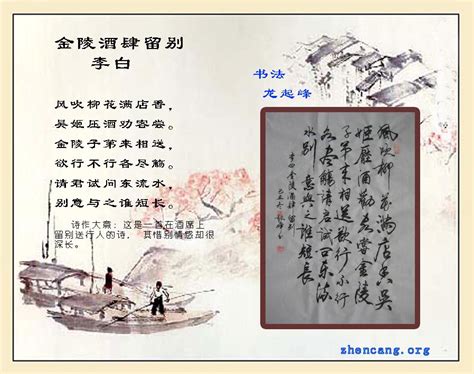 金陵酒肆留别
李白
风吹柳花满店香，
吴姬压酒劝客尝。
金陵子第来相送，
欲行不行各尽觞。
请君试问东流水，
别意与之谁短长。
诗作大意：这是一首在酒席上
留别送行人的诗，其惜别情感却很
深长。
书法
龙起峰
風吹柳花满店香吴
姬壓酒勸客嘗金陵
子弟来相送欲行不行
各尽觴请君试问东流
水别意与之谁短长
李白金陵酒肆留别
zhencang.org